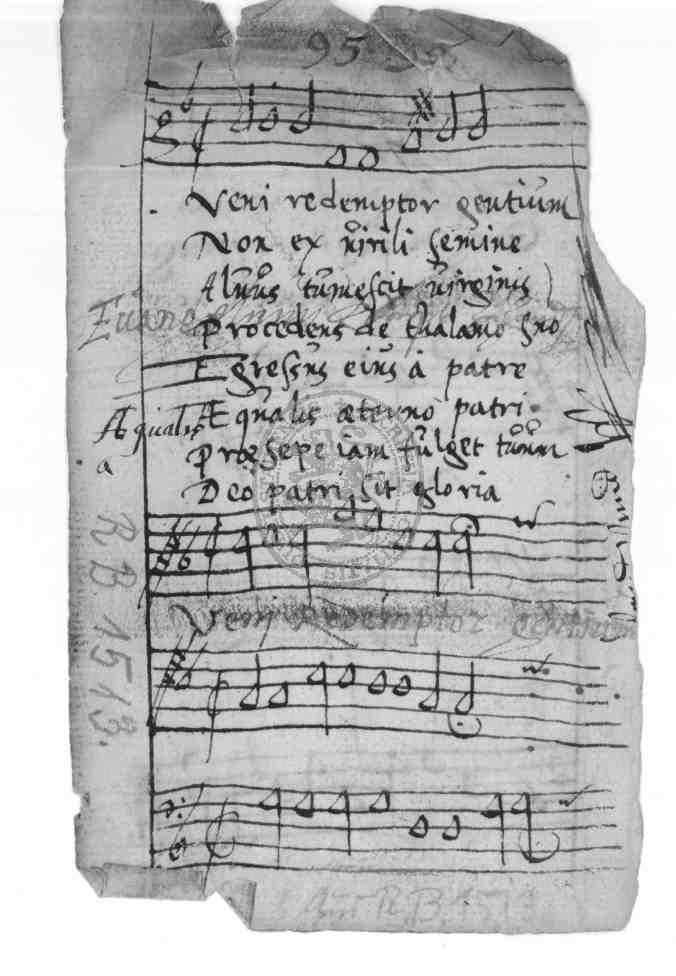 95
Veni redemptor gentium
Non ex virili semine
Alvus tumescit virginis
Procedens de thalamo suo
Egressus eius à patre
Æqualis Æqualis æterno patri.
a Præsepe iam fulget tuum
Deo patri sit gloria
Veni Redemptor Gentium
R B 1513.
R.B. 151